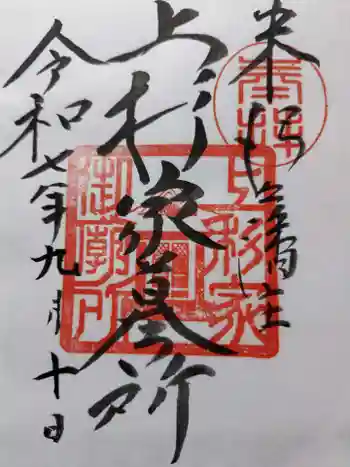 米沢藩主
奉拝
上杉家墓所
上杉家
御廟所
令和七年九月十日